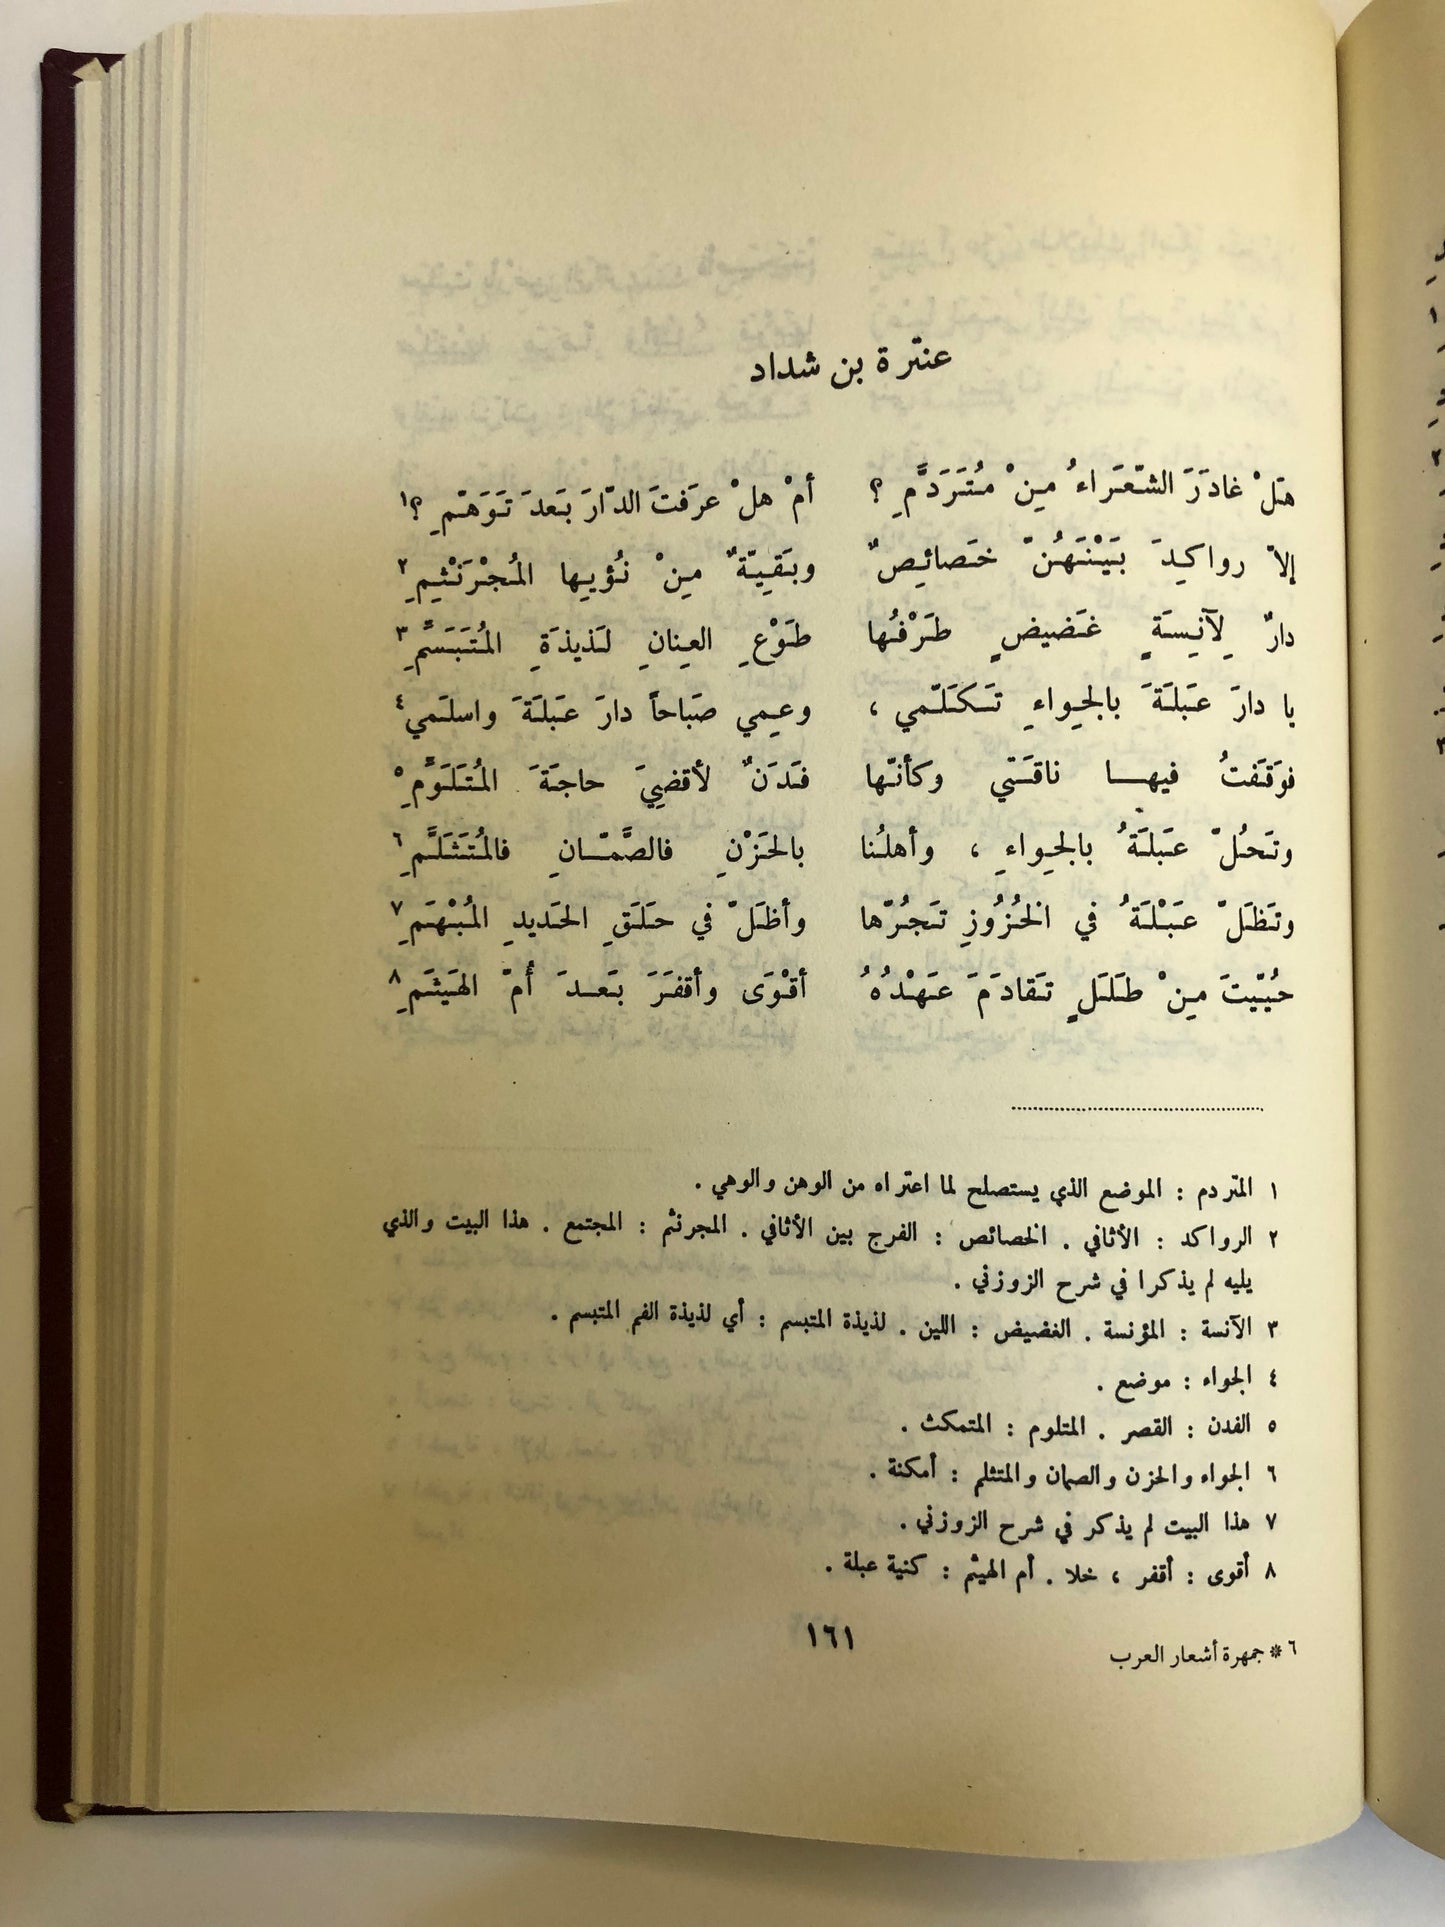 عنترة بن شداد
هَلْ غادَرَ الشّعَراءُ مِنْ مُتَرَدَّمِ ؟ أمْ هلْ عرَفتَ الدّارَ بَعدَ تَوَهّمِ ؟١
إلاّ رواكِدَ بَيْنَهُنّ خَصائِصٌ وبَقِيّةٌ مِنْ نُؤيِها المُجْرَنْثِمِ٢
دارٌ لِآنِسَةٍ غَضيضٍ طَرْفُها طَوْعِ العِنانِ لَذيذَةِ المُتَبَسَّمِ٣
يا دارَ عَبلَةَ بالجِواءِ تَكَلّمي ، وعِمِي صَبَاحاً دارَ عَبلَةَ واسلَمي٤
فوَقَفتُ فيهـا ناقَتي وكأنّها فَدَنٌ لأقضِيَ حاجَةَ المُتَلَوَّمِ٥
وتَحُلّ عَبلَةُ بالجِواءِ ، وأهلُنا بالحَزْنِ فالصَّمّانِ فالمُتَثَلَّمِ٦
وتَظَلّ عَبْلَةُ في الخُزُوزِ تَجُرّها وأظَلّ في حَلَقِ الحَديدِ المُبْهَمِ٧
حُيّيتَ مِنْ طَلَلٍ تَقادَمَ عَهْدُهُ أقْوَى وأقفَرَ بَعدَ أُمّ الهَيثَمِ٨
١ المتردم : الموضع الذي يستصلح لما اعتراه من الوهن والوهي .
٢ الرواكد : الأثافي . الخصائص : الفرج بين الأثافي . المجرنثم : المجتمع . هذا البيت والذي
يليه لم يذكرا في شرح الزوزني .
٣ الآنسة : المؤنسة . الغضيض : اللين . لذيذة المتبسم : أي لذيذة الفم المتبسم .
٤ الجواء : موضع .
٥ الفدن : القصر . المتلوم : المتمكث .
٦ الجواء والحزن والصمان والمتثلم : أمكنة .
٧ هذا البيت لم يذكر في شرح الزوزني .
٨ أقوى : أقفر ، خلا . أم الهيثم : كنية عبلة .
١٦١
٦ * جمهرة أشعار العرب